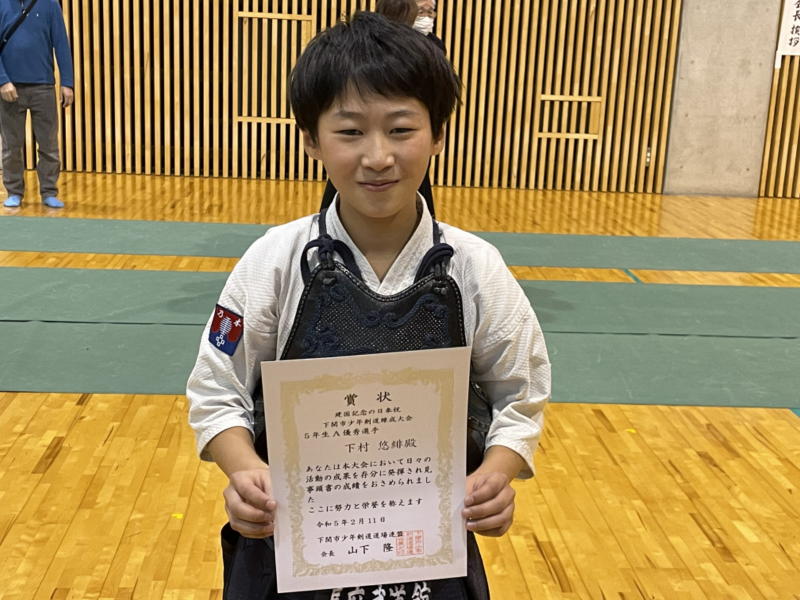 会長挨拶
乃木
賞状
建国記念の日奉祝
下関市少年剣道錬成大会
5年生A優秀選手
下村 悠緋殿
あなたは本大会において日々の
活動の成果を存分に発揮され見
事頭書の成績をおさめられまし
た
ここに努力と栄誉を称えます
令和5年2月11日
下関市少年剣道道場連盟
会長 山下 隆